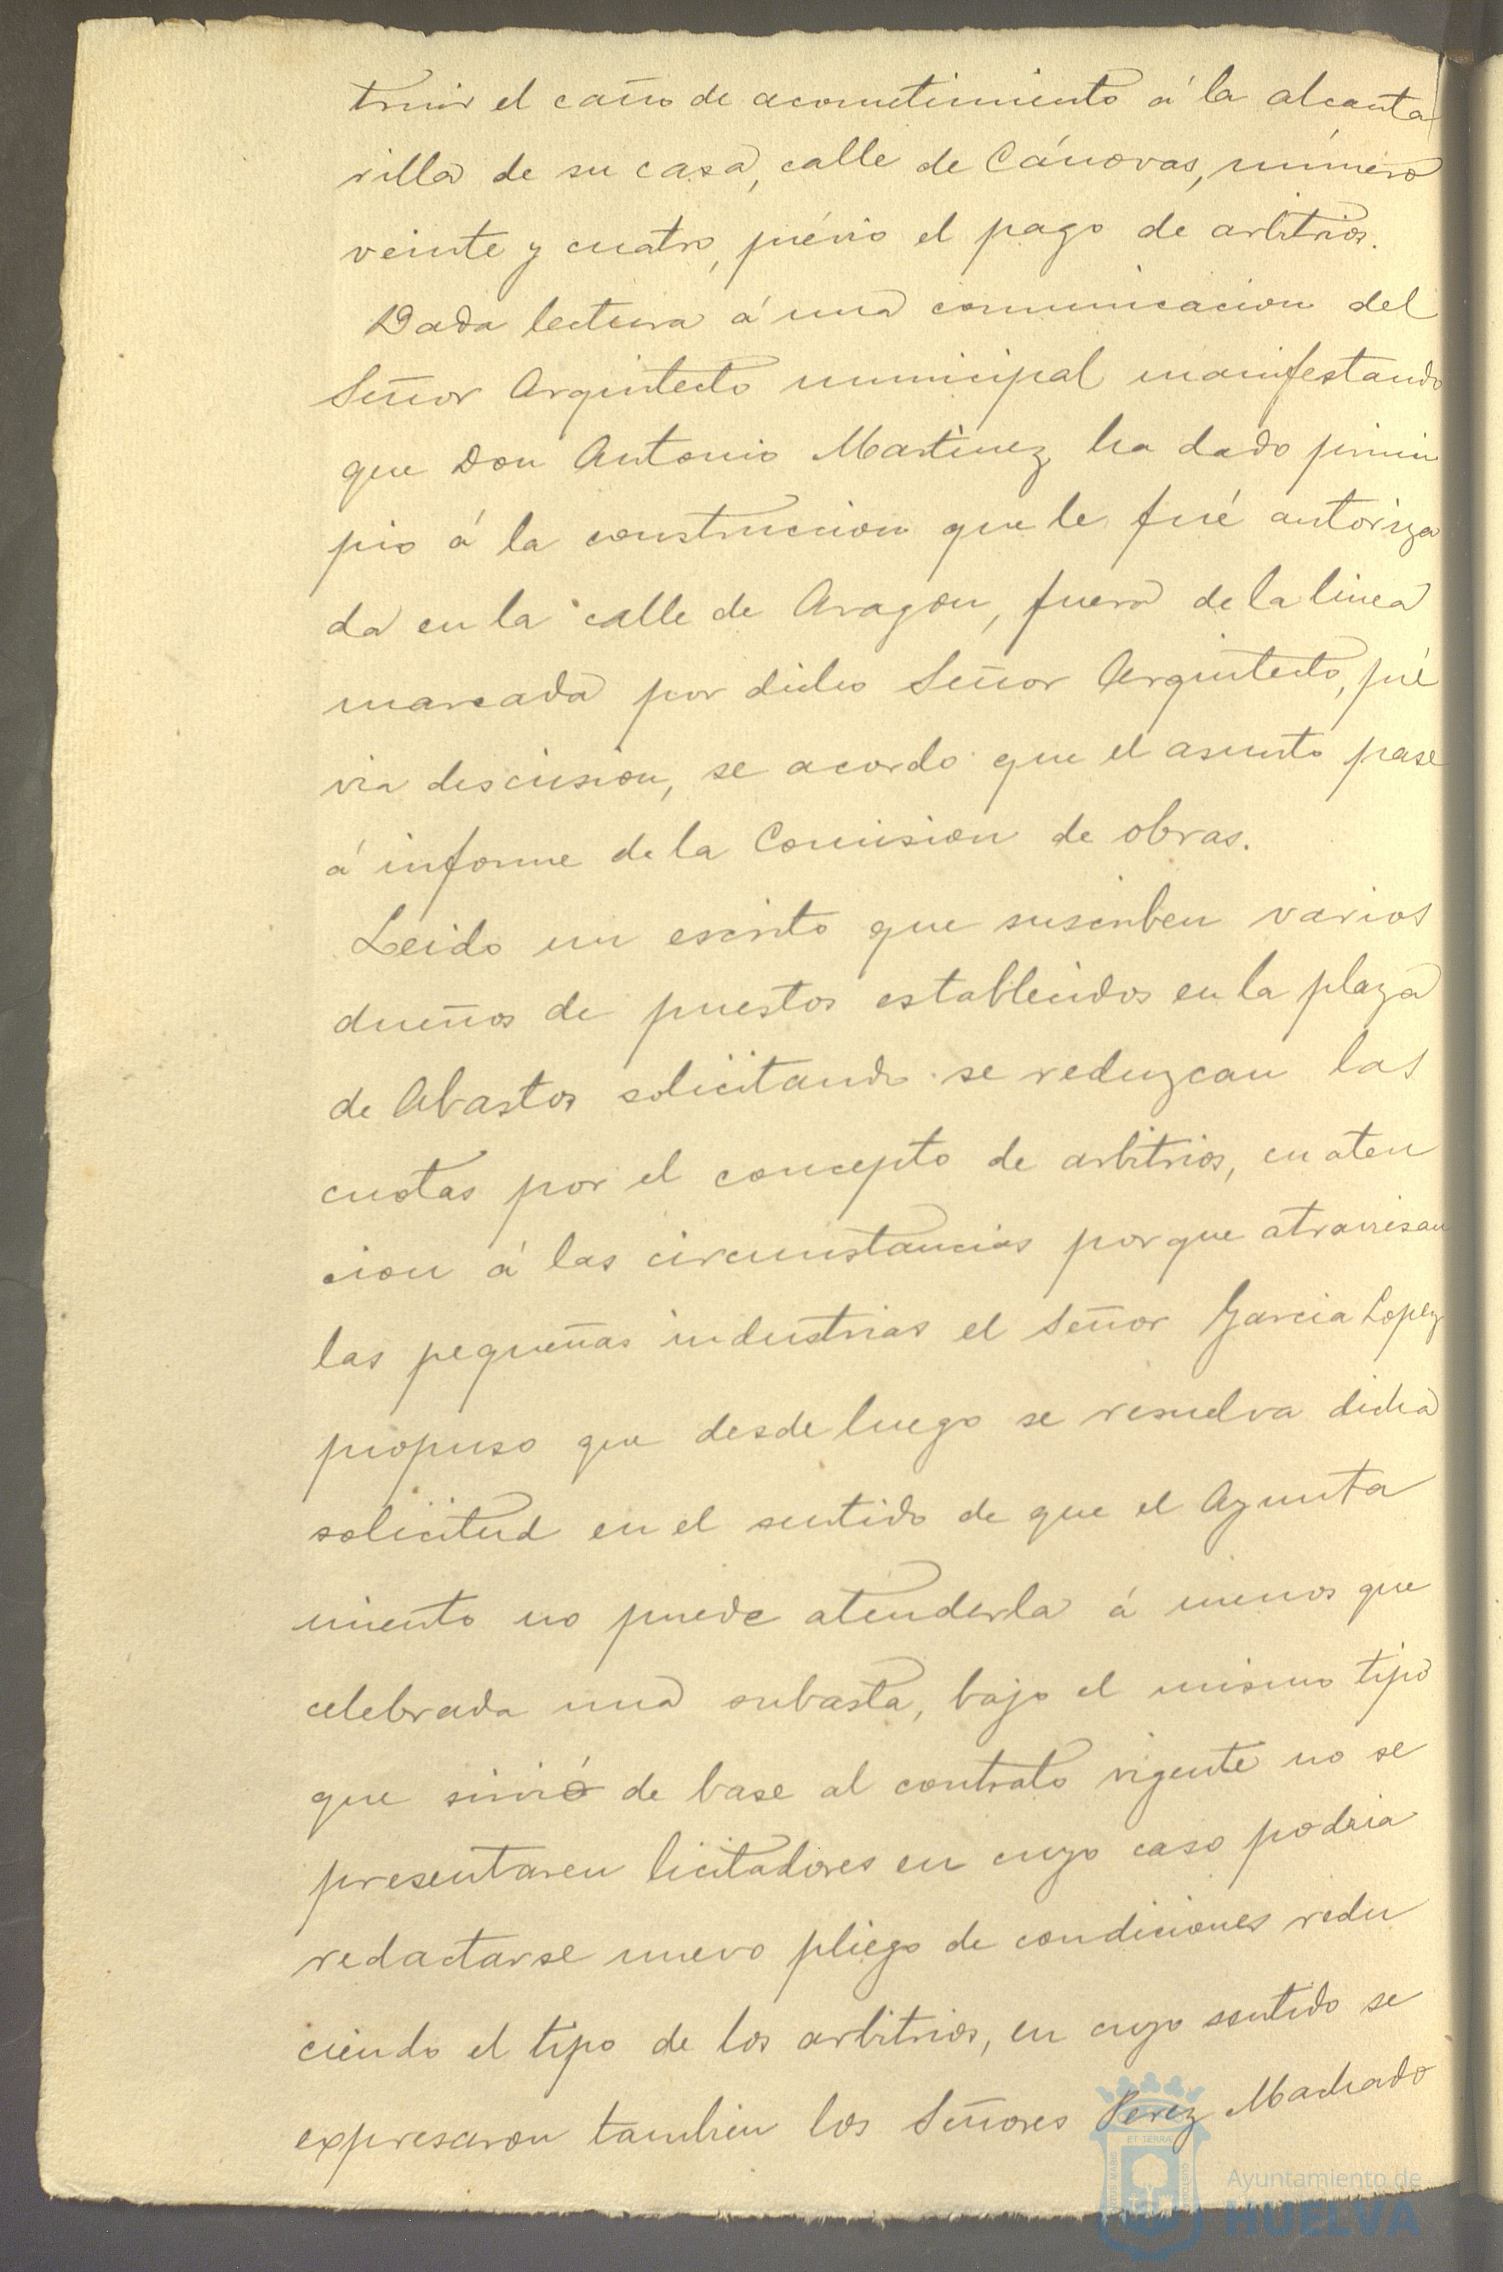 truir el caño de acometimiento á la alcanta
rilla de su casa, calle de Cánovas, número
veinte y cuatro, prévio el pago de arbitrios.
Dada lectura á una comunicacion del
Señor Arquitecto municipal manifestando
que Don Antonio Martinez ha dado princi
pio á la construccion que le fué autoriza
da en la calle de Aragon, fuera de la linea
marcada por dicho Señor Arquitecto, pré
via discusion, se acordo que el asunto pase
á informe de la Comision de obras.
Leido un escrito que suscriben varios
dueños de puestos establecidos en la plaza
de Abastos solicitando se reduzcan las
cuotas por el concepto de arbitrios, en aten
cion á las circunstancias por que atraviesan
las pequeñas industrias el Señor Garcia Lopez
propuso que desde luego se resuelva dicha
solicitud en el sentido de que el Ayunta
miento no puede atenderla á menos que
celebrada una subasta, bajo el mismo tipo
que sirvió de base al contrato vigente no se
presentaren licitadores en cuyo caso podria
redactarse nuevo pliego de condiciones redu
ciendo el tipo de los arbitrios, en cuyo sentido se
expresaron tambien los Señores Perez Machado
ET TERRA
Ayuntamiento de
HUELVA